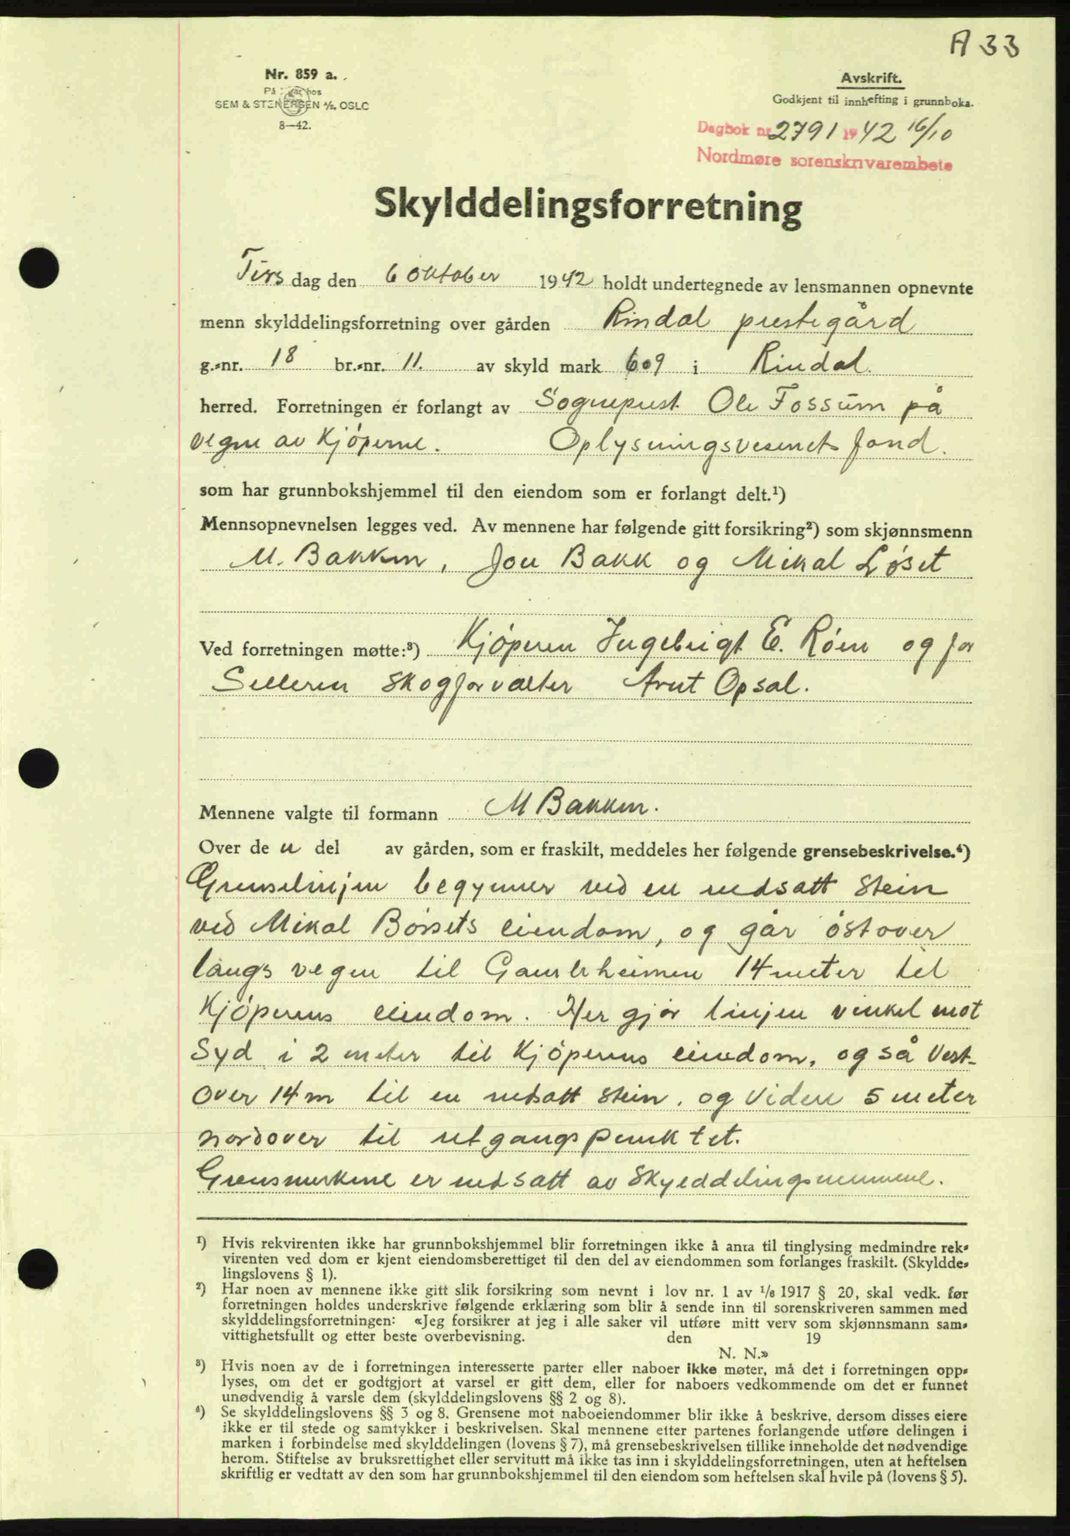 A 33
Nr. 859 a.
Avskrift.
Godkjent til innhefting i grunnboka.
SEM & STENERSEN A/S. OSLO
8—42.
Dagbok nr. 2791 1942 16/10
Nordmøre sorenskrivarembete
Skylddelingsforretning
Tirs dag den 6 Oktober 1942 holdt undertegnede av lensmannen opnevnte
menn skylddelingsforretning over gården Rindal prestegård
g.-nr. 18 br.-nr. 11. av skyld mark 609 i Rindal.
herred. Forretningen er forlangt av Sogneprest Ole Fossum på
vegne av Kjöperne. Oplysningsvesenets fond.
som har grunnbokshjemmel til den eiendom som er forlangt delt.¹)
Mennsopnevnelsen legges ved. Av mennene har følgende gitt forsikring²) som skjønnsmenn
M. Bakken, Jon Bakk og Mikal Løset
Ved forretningen møtte:³) Kjöperen Ingebrigt E. Røen og for
Selleren Skogforvalter Arnt Opsal.
Mennene valgte til formann M Bakken.
Over de n del av gården, som er fraskilt, meddeles her følgende grensebeskrivelse.⁴)
Grenselinjen begynner ved en nedsatt Stein
ved Mikal Børsets eiendom, og går östover
langs vegen til Gamleheimen 14 meter til
Kjöperens eiendom. Her gjör linjen vinkel mot
Syd i 2 meter til Kjöperens eiendom, og så Vest-
over 14 m til en nedsatt Stein, og videre 5 meter
nordover til utgangspunktet.
Grensmerkene er nedsatt av Skylddelingsmennene.
¹) Hvis rekvirenten ikke har grunnbokshjemmel blir forretningen ikke å anta til tinglysing medmindre rek-
virenten ved dom er kjent eiendomsberettiget til den del av eiendommen som forlanges fraskilt. (Skyldde-
lingslovens § 1).
²) Har noen av mennene ikke gitt slik forsikring som nevnt i lov nr. 1 av 1/6 1917 § 20, skal vedk. før
forretningen holdes underskrive følgende erklæring som blir å sende inn til sorenskriveren sammen med
skylddelingsforretningen: «Jeg forsikrer at jeg i alle saker vil utføre mitt verv som skjønnsmann sam-
vittighetsfullt og etter beste overbevisning. den 19
N. N.»
³) Hvis noen av de i forretningen interesserte parter eller naboer ikke møter, må det i forretningen opp-
lyses, om det er godtgjort at varsel er gitt dem, eller for naboers vedkommende om det er funnet
unødvendig å varsle dem (skylddelingslovens §§ 2 og 8).
⁴) Se skylddelingslovens §§ 3 og 8. Grensene mot naboeiendommer blir ikke å beskrive, dersom disses eiere
ikke er til stede og samtykker i beskrivelsen. Skal mennene etter partenes forlangende utføre delingen i
marken i forbindelse med skylddelingen (lovens § 7), må grensebeskrivelsen tillike inneholde det nødvendige
herom. Stiftelse av bruksrettighet eller servitutt må ikke tas inn i skylddelingsforretningen, uten at heftelsen
skriftlig er vedtatt av den som har grunnbokshjemmel til den eiendom som heftelsen skal hvile på (lovens § 5).